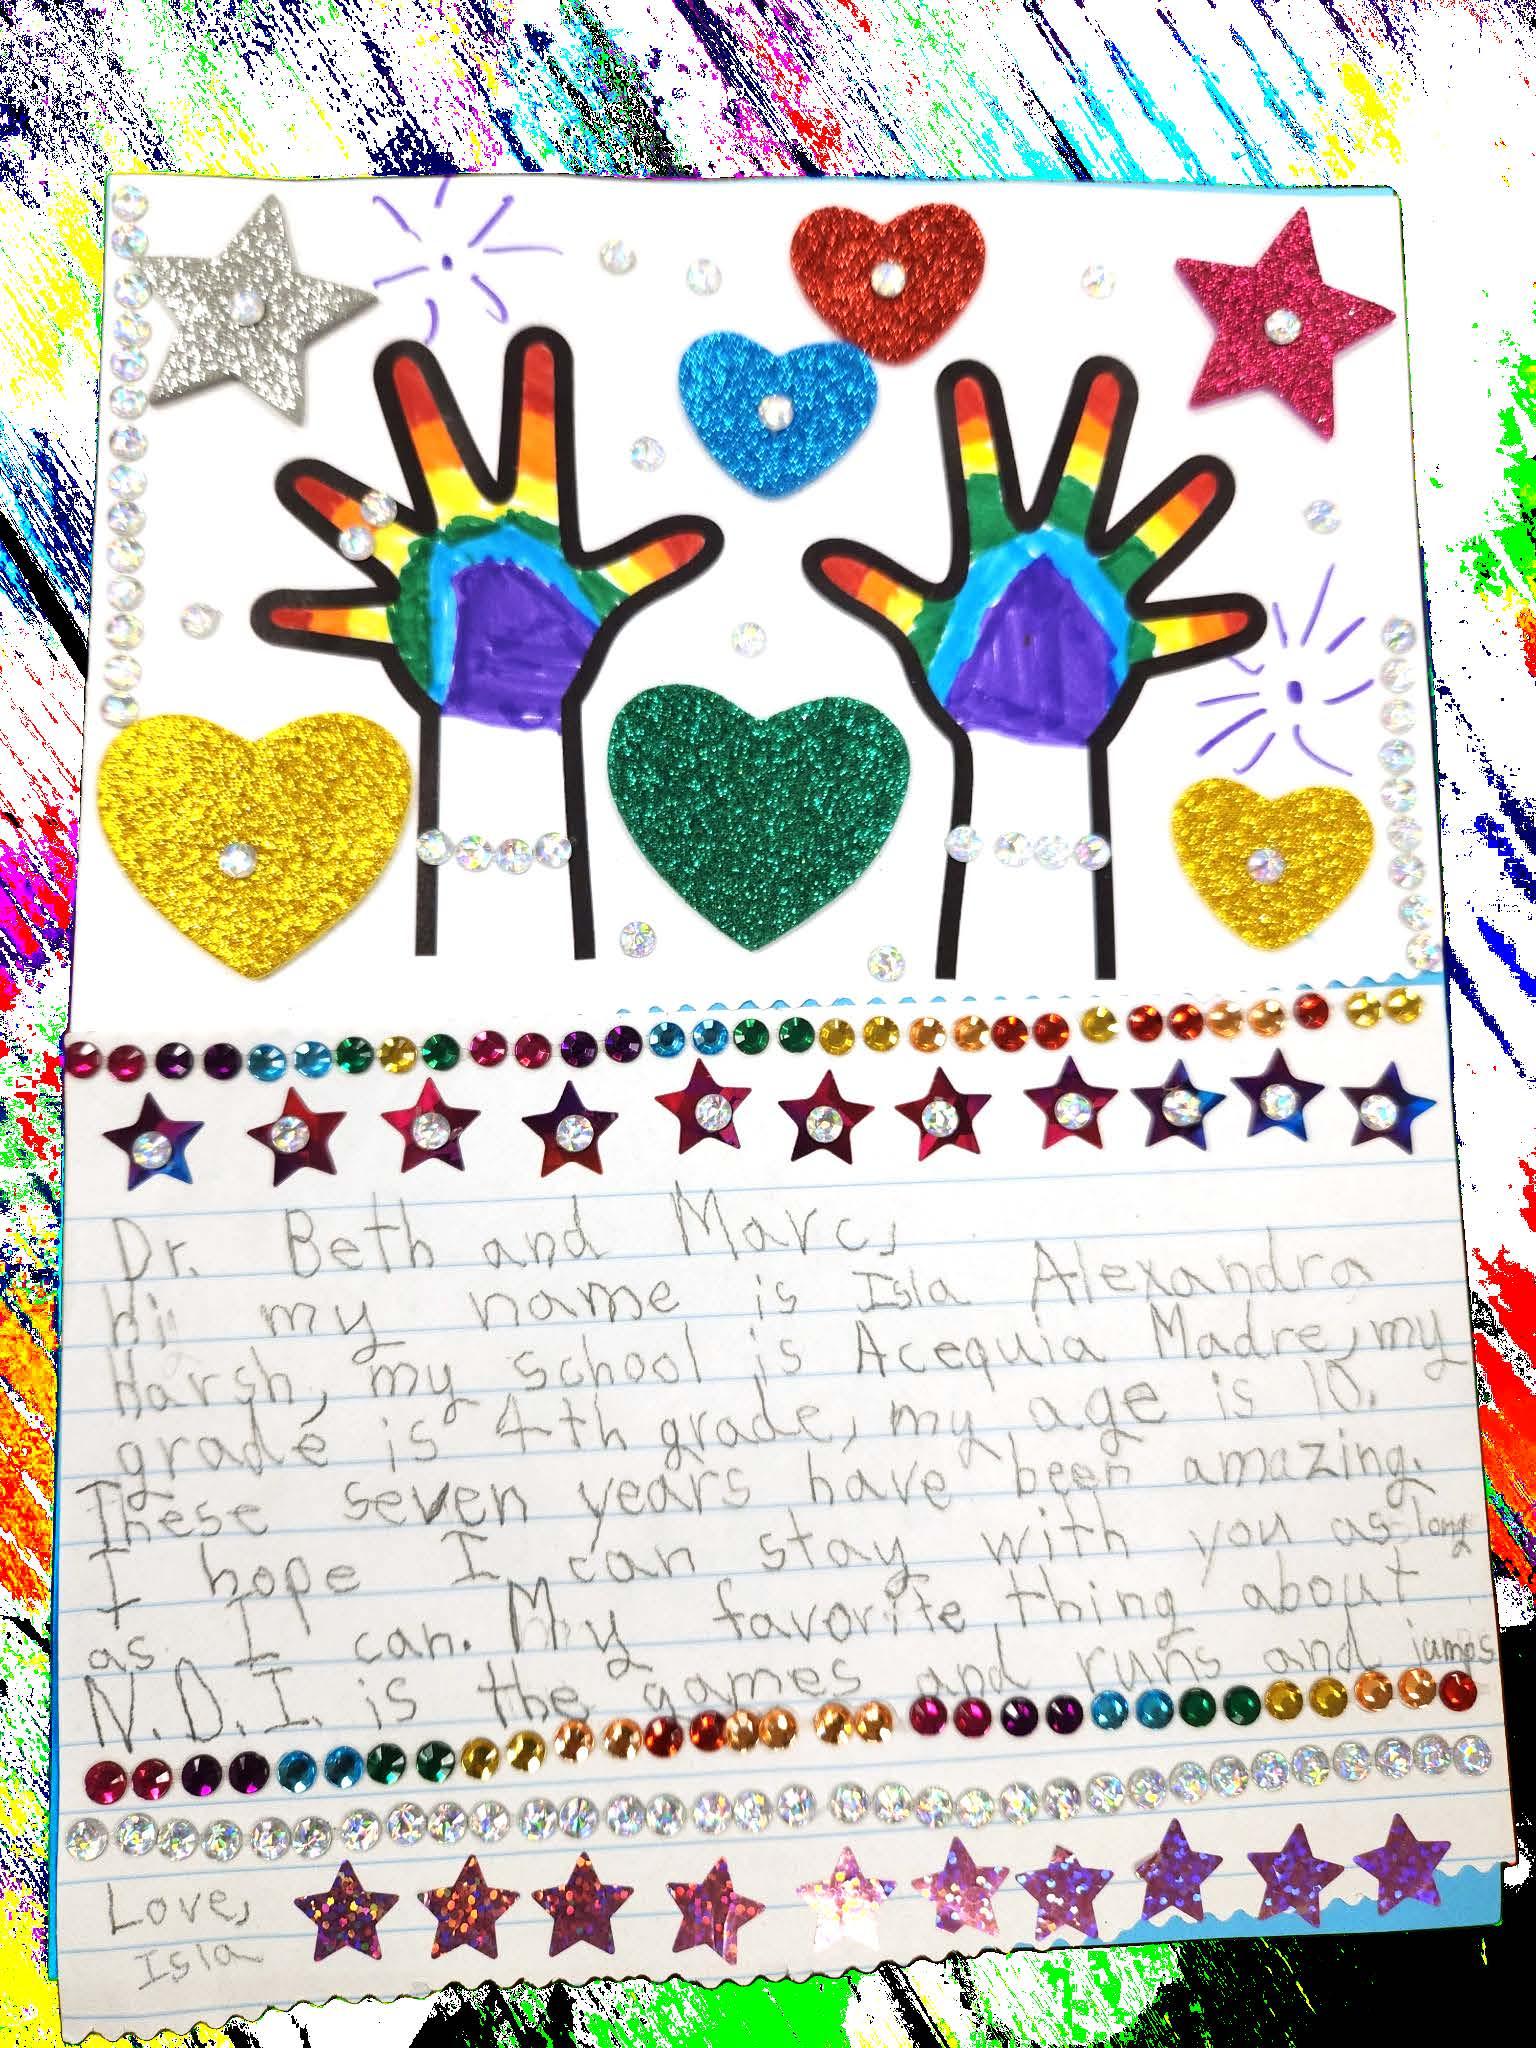 Dr. Beth and Marc,
hi my name is Isla Alexandra
Harsh, my school is Acequia Madre, my
grade is 4th grade, my age is 10.
These seven years have been amazing.
I hope I can stay with you as long
as I can. My favorite thing about
N.D.I. is the games and runs and jumps
Love,
Isla